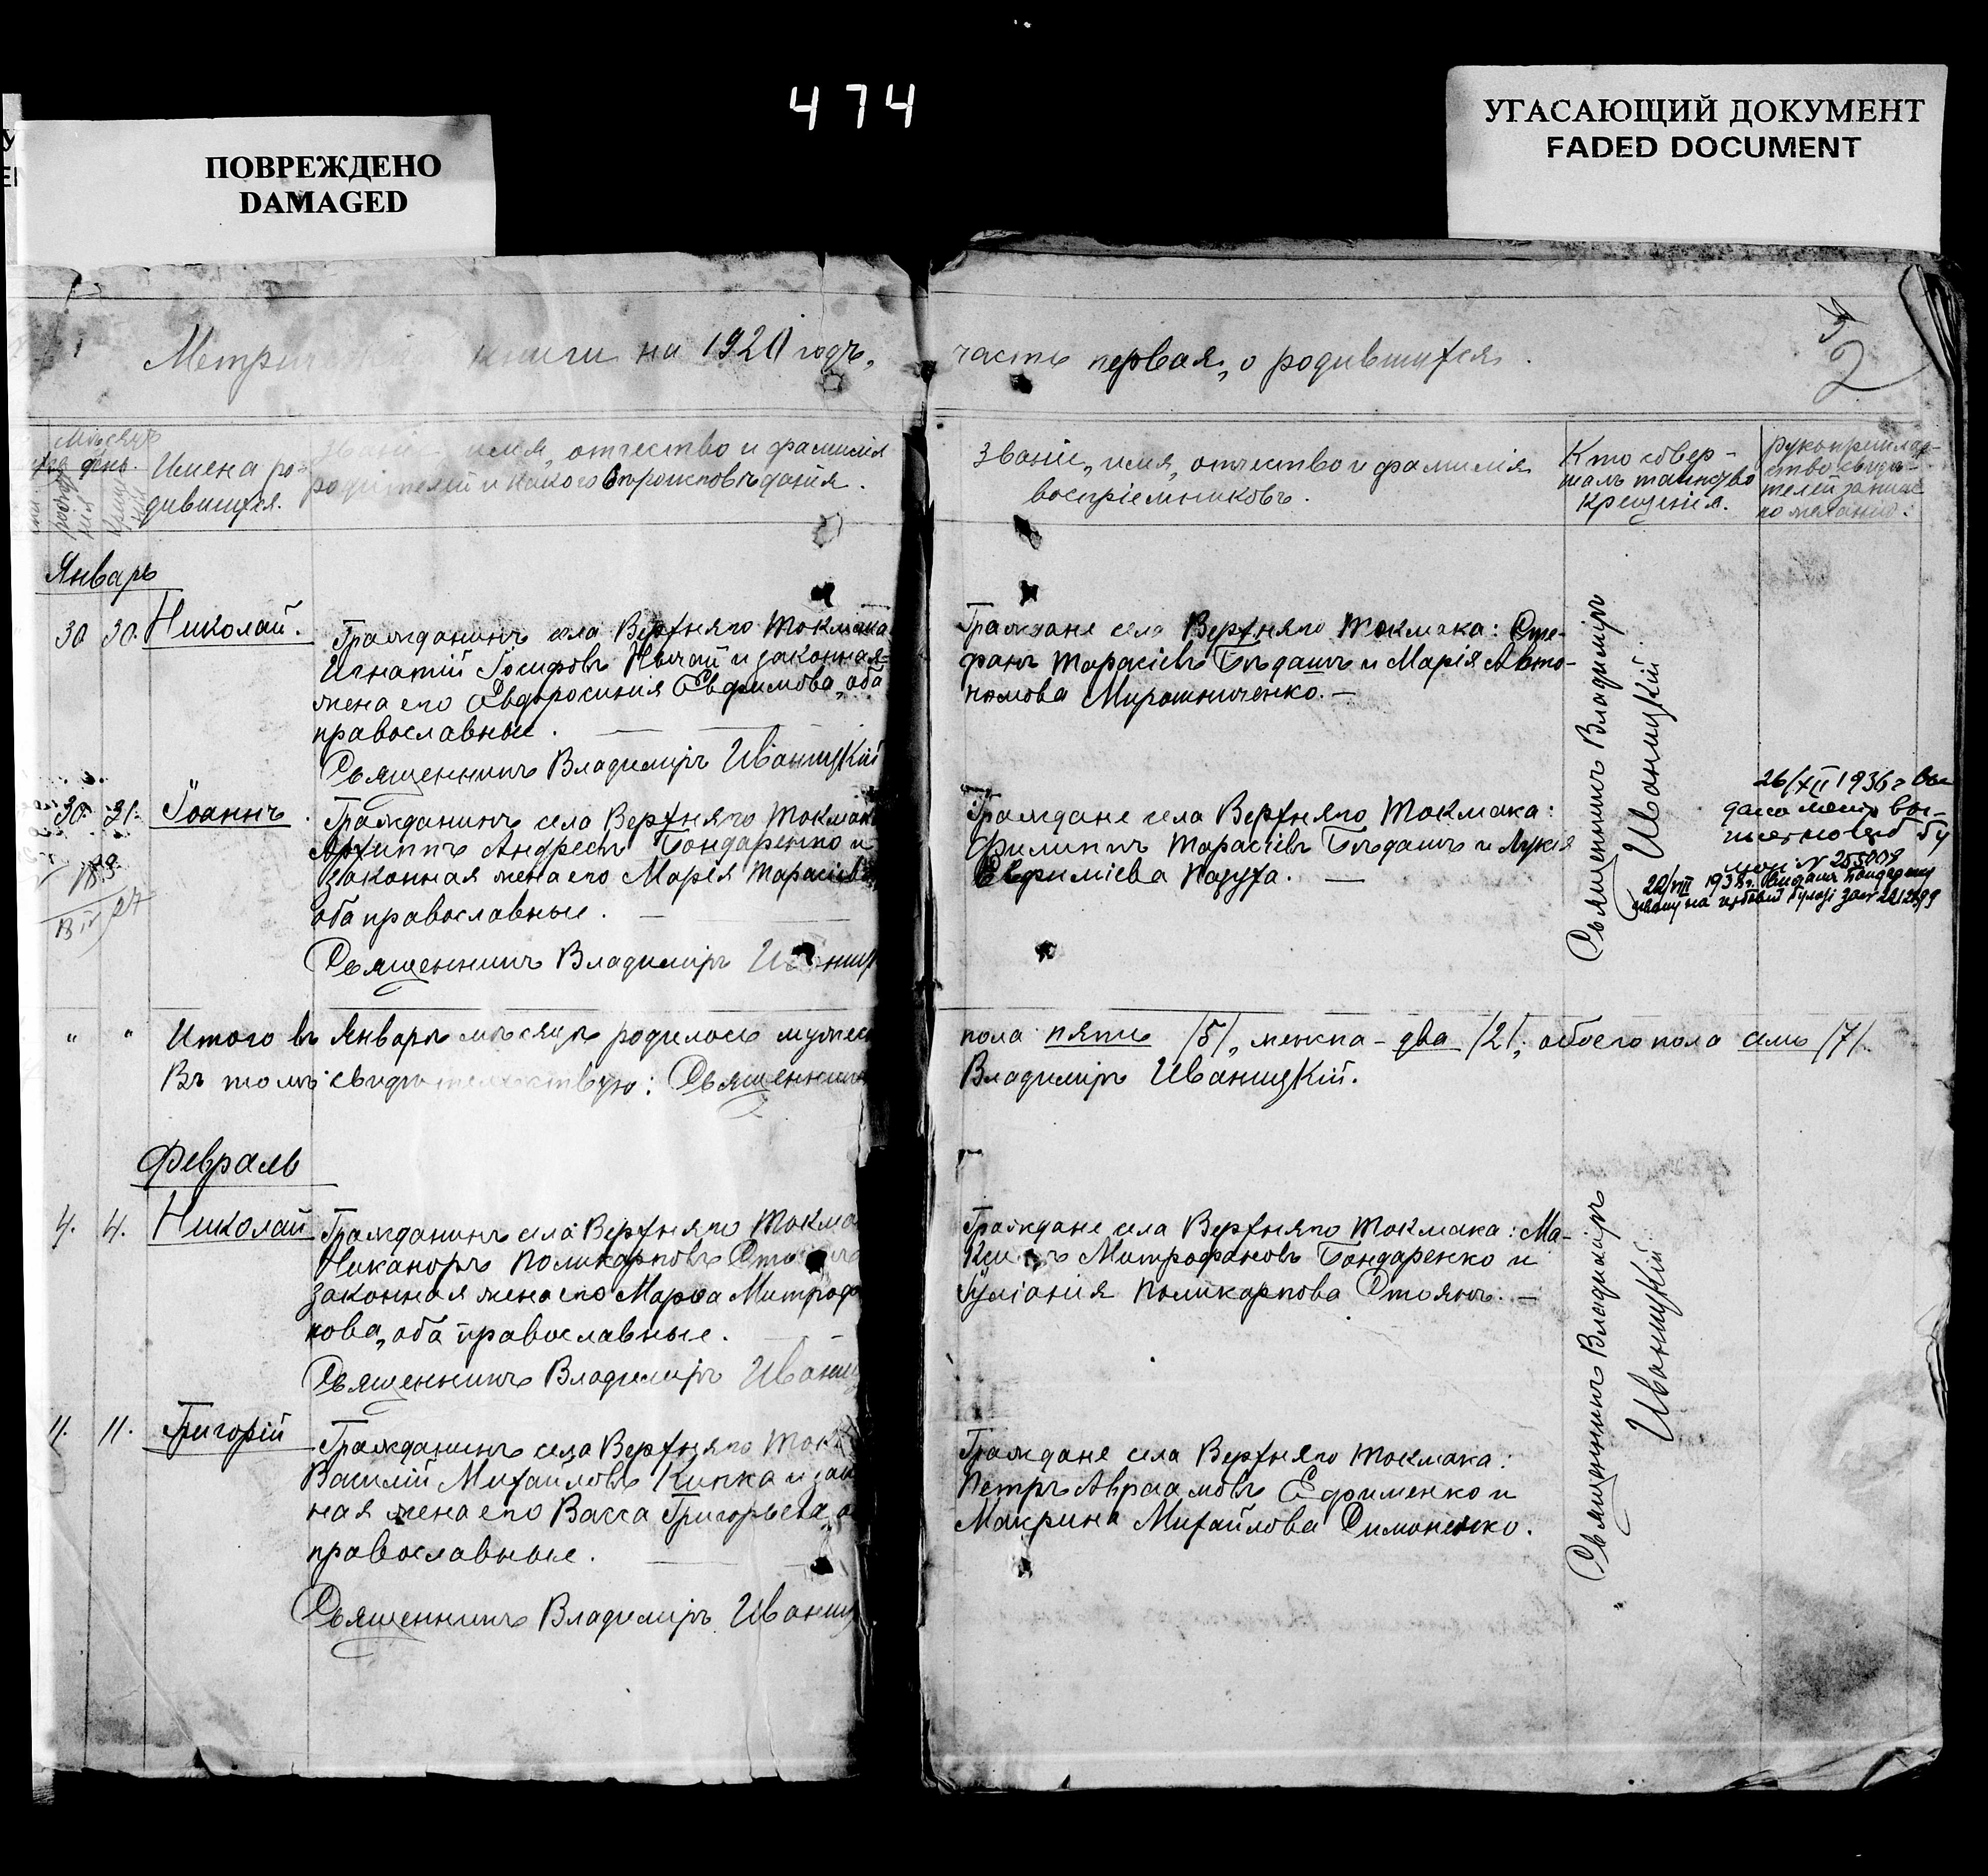 474
ПОВРЕЖДЕНО
DAMAGED
УГАСАЮЩИЙ ДОКУМЕНТ
FADED DOCUMENT
книги на 1920 годъ,
часть первая, о родившихся.
2
Мѣсяцъ
день.
Имена ро-
дившихся.
имя, отчество и фамилія
родителей и какого вѣроисповѣданія.
Званіе, имя, отчество и фамилія
воспріемниковъ.
Кто совер-
шалъ таинство
крещенія.
Рукоприклад-
ство свидѣ-
телей записи
по желанію.
Январь
30 30. Николай.
Гражданинъ села Верхняго Токмака
Игнатій Іосифовъ и законная
жена его Евфросинія Евфимова, оба
православные.
Священникъ Владиміръ Иваницкій
Граждане села Верхняго Токмака: Сте-
фанъ Тарасіевъ Бѣдашъ и Марія Авто-
номова Мирошниченко. —
30. 31. Іоаннъ.
Гражданинъ села Верхняго Токмака
Архиппъ Андреевъ Бондаренко и
законная жена его Марія Тарасіева
оба православные. —
Священникъ Владиміръ
Граждане села Верхняго Токмака:
Филиппъ Тарасіевъ Бѣдашъ и Лукія
Евфиміева Пазуха. —
Священникъ Владиміръ
Иваницкій
26/XII 1936 г.
" " Итого въ Январѣ мѣсяцѣ родилось мужеск
пола пять /5/, женска – два /2/, обоего пола семь /7/.
Въ томъ свидѣтельствую: Священникъ
Владиміръ Иваницкій.
Февраль
4. 4. Николай
Гражданинъ села Верхняго Токма
Никаноръ Поликарповъ
законная жена его Марѳа Митрофа
нова, оба православные.
Священникъ Владиміръ Иваниц
Граждане села Верхняго Токмака: Ма-
Митрофановъ Бондаренко и
Іуліанія Поликарпова Стоянъ. —
11. 11. Григорій
Гражданинъ села Верхняго Ток
Василій Михайловъ Кипка и зак
ная жена его Васса Григорьева, о
православные.
Священникъ Владиміръ Иваниц
Граждане села Верхняго Токмака:
Петръ Авраамовъ Ефименко и
Макрина Михайлова Симоненко.
Священникъ Владиміръ
Иваницкій